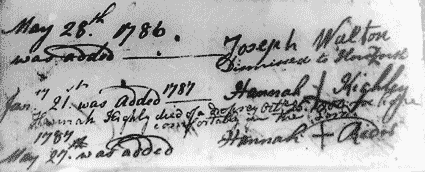 May 28th. 1786
was added — Joseph Walton
Dismissed to
Jan. 21st. was Added 1787 — Hannah + Highley
Hannah Highly died of a Dropsey Octr.
comfortable in the Lord
1787
May 27th. was added Hannah +